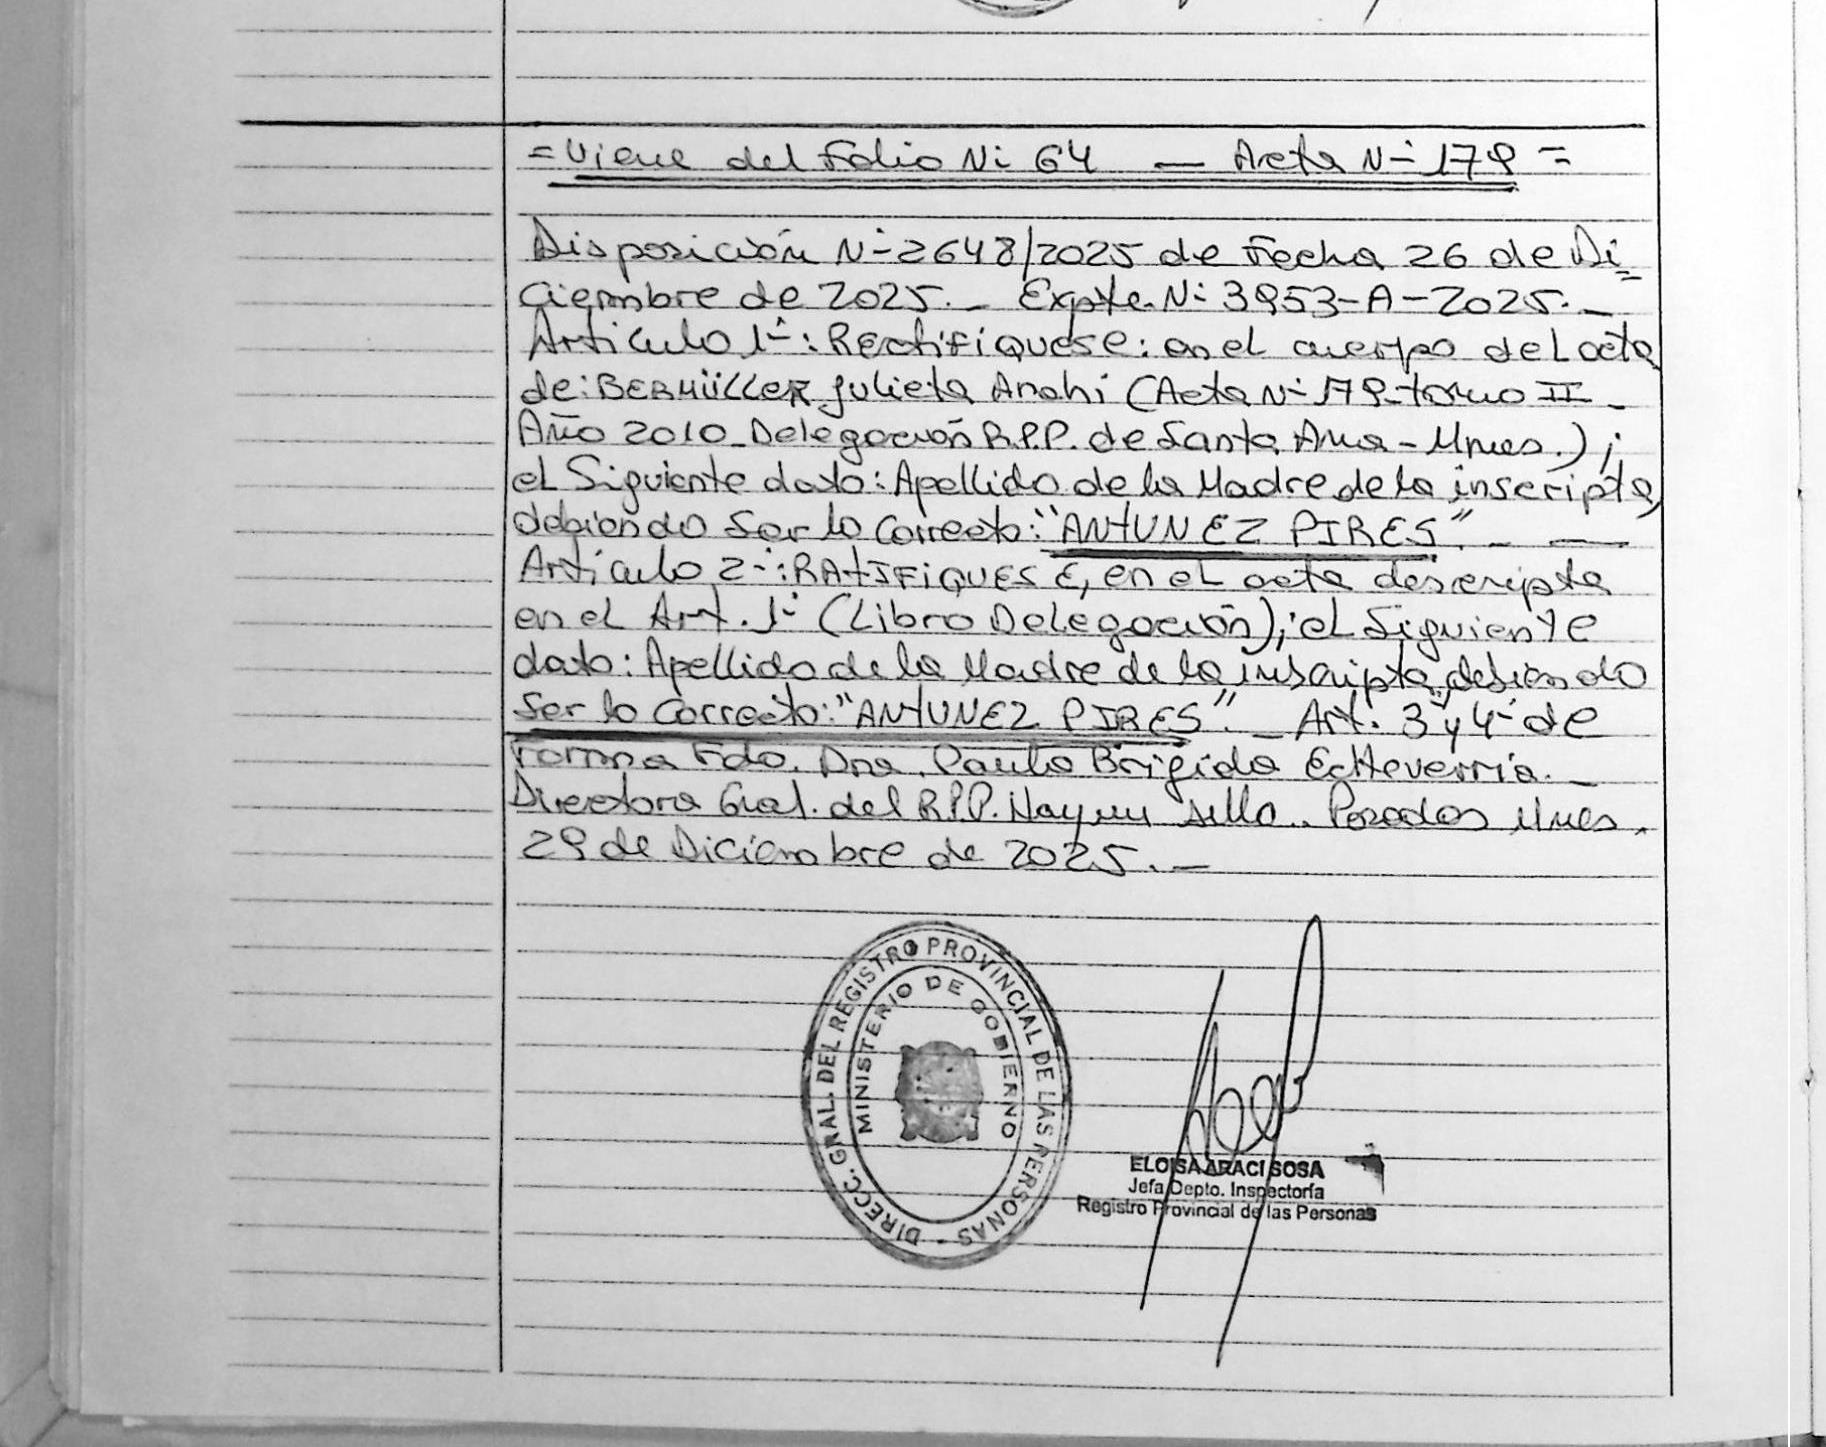 = Viene del Folio Nº 64 — Acta Nº 179 =
Disposición Nº 2648/2025 de Fecha 26 de Di=
ciembre de 2025._ Expte. Nº 3953-A-2025._
Artículo 1º: Rectifíquese: en el cuerpo del acta
de: BERMÜLLER Julieta Anahi (Acta Nº 179 - tomo II -
Año 2010 - Delegación R.P.P. de Santa Ana - Mnes.);
el Siguiente dato: Apellido de la Madre de la inscripta,
debiendo Ser lo Correcto: "ANTUNEZ PIRES"._ —
Artículo 2º: RATIFIQUESE, en el acta descripta
en el Art. 1º (Libro Delegación); el Siguiente
dato: Apellido de la Madre de la inscripta, debiendo
Ser lo Correcto: "ANTUNEZ PIRES"._ Art. 3º y 4º de
Forma Fdo. Dra. Paula Brigida Echeverría._
Directora Gral. del R.P.P. Hay un Sello. Posadas Mnes.
29 de Diciembre de 2025._
DIRECC. GRAL. DEL REGISTRO PROVINCIAL DE LAS PERSONAS -
MINISTERIO DE GOBIERNO
ELOISA ARACI SOSA
Jefa Depto. Inspectoría
Registro Provincial de las Personas